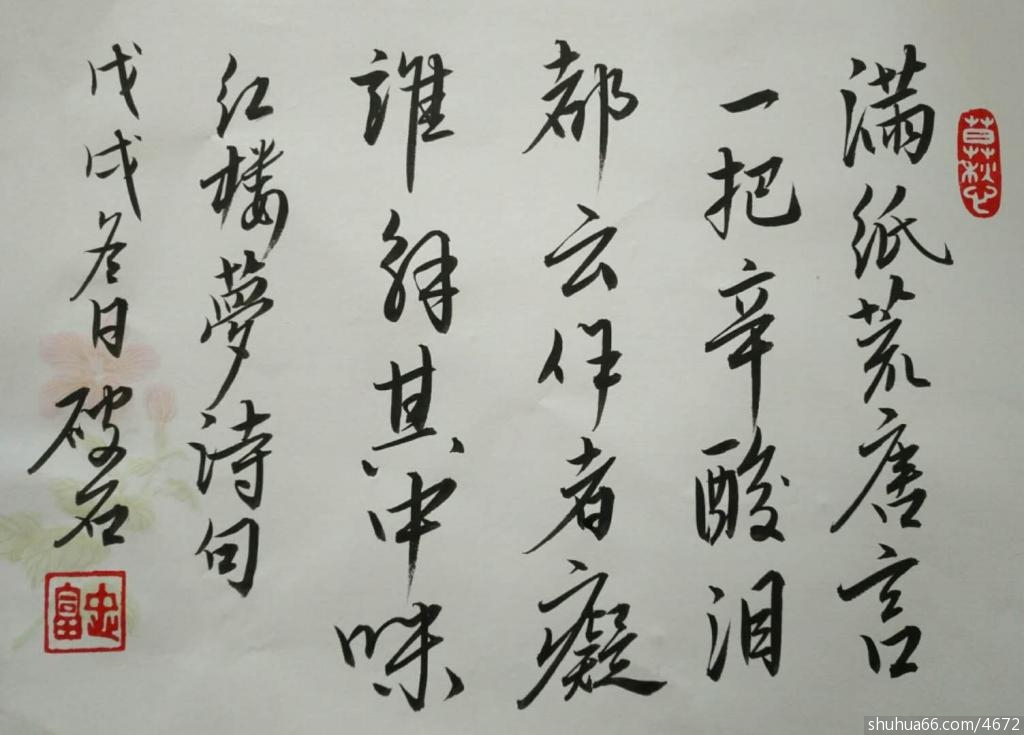 滿纸荒唐言
一把辛酸泪
都云作者癡
誰解其中味
红楼夢诗句
戊戌冬日 破石
忠富
shuhua66.com/4672